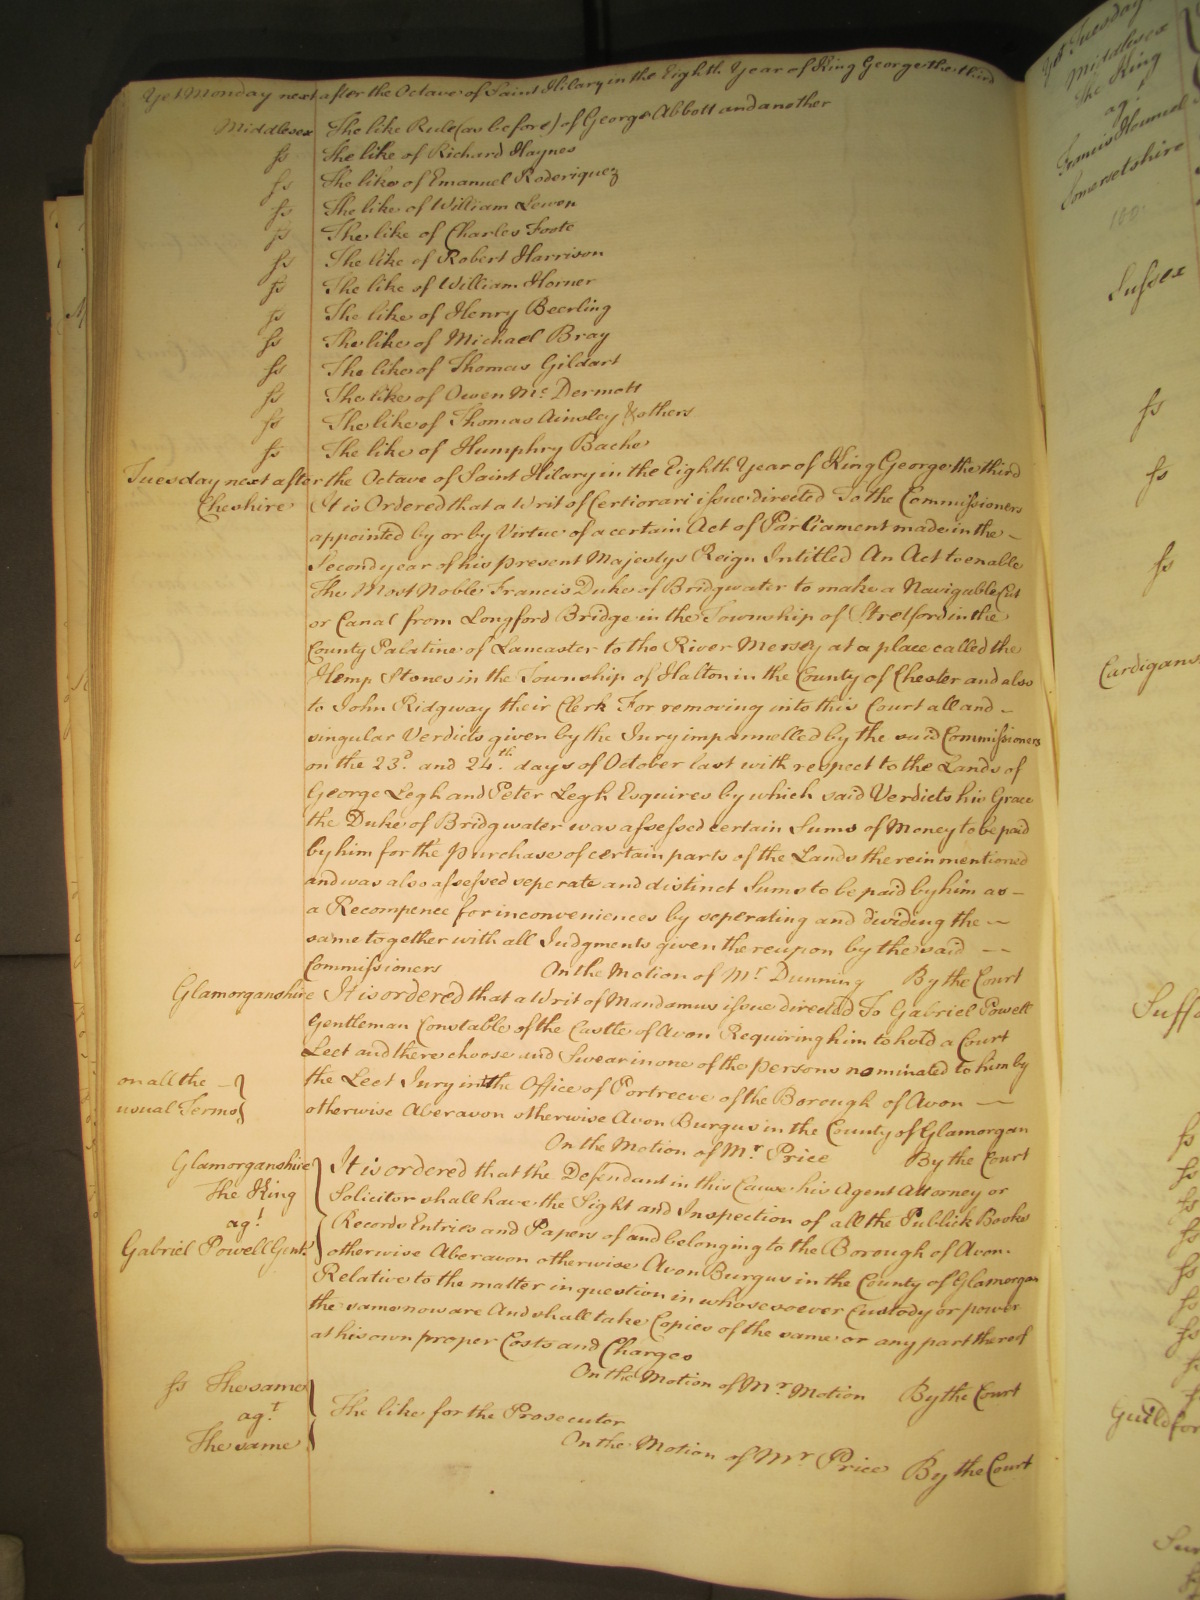 Yet Monday next after the Octave of Saint Hilary in the Eighth Year of King George the third
Middlesex The like Rule (as before) of George Abbott and another
ſs The like of Richard Haynes
ſs The like of Emanuel Roderiquez
ſs The like of William Lewen
ſs The like of Charles Foote
ſs The like of Robert Harrison
ſs The like of William Horner
ſs The like of Henry Beerling
ſs The like of Michael Bray
ſs The like of Thomas Gildart
ſs The like of Owen Mc Dermott
ſs The like of Thomas Ainsley & others
ſs The like of Humphry Bache
Tuesday next after the Octave of Saint Hilary in the Eighth Year of King George the third
Cheshire It is Ordered that a Writ of Certiorari iſsue directed To the Commiſsioners
appointed by or by Virtue of a certain Act of Parliament made in the
Second year of his present Majestys Reign Intitled An Act to enable
The Most Noble Francis Duke of Bridgwater to make a Navigable Cut
or Canal from Longford Bridge in the Township of Stretford in the
County Palatine of Lancaster to the River Mersey at a place called the
Hemp Stones in the Township of Halton in the County of Chester and also
to John Ridgway their Clerk For removing into this Court all and
singular Verdicts given by the Jury impannelled by the said Commiſsioners
on the 23d. and 24th. days of October last with respect to the Lands of
George Legh and Peter Legh Esquires by which said Verdicts his Grace
the Duke of Bridgwater was aſseſsed certain Sums of Money to be paid
by him for the purchase of certain parts of the Lands therein mentioned
and was also aſseſsed seperate and distinct Sums to be paid by him as
a Recompence for inconveniences by seperating and dividing the
same together with all Judgments given thereupon by the said
Commiſsioners On the Motion of Mr. Dunning By the Court
Glamorganshire It is ordered that a Writ of Mandamus iſsue directed To Gabriel Powell
Gentleman Constable of the Castle of Avon Requiring him to hold a Court
Leet and there choose and Swear in one of the persons nominated to him by
on all the the Leet Jury in the Office of Portreeve of the Borough of Avon
usual Terms otherwise Aberavon otherwise Avon Burgus in the County of Glamorgan
On the Motion of Mr. Price By the Court
Glamorganshire It is ordered that the Defendant in this Cause his Agent Attorney or
The King Solicitor shall have the Sight and Inspection of all the Publick Books
agt. Records Entries and Papers of and belonging to the Borough of Avon
Gabriel Powell Gent. otherwise Aberavon otherwise Avon Burgus in the County of Glamorgan
Relative to the matter in question in whosesoever Custody or power
the same now are And shall take Copies of the same or any part thereof
at his own proper Costs and Charges
On the Motion of Mr. Motion By the Court
ſs The same
agt. The like for the Prosecutor
The same On the Motion of Mr Price By the Court
Yet Tuesday
Middlesex
The King
agt.
Somersetshire
Suſsex
ſs
ſs
ſs
Cardigans
Suff
ſs
ſs
ſs
ſs
ſs
ſs
ſs
Guildfor